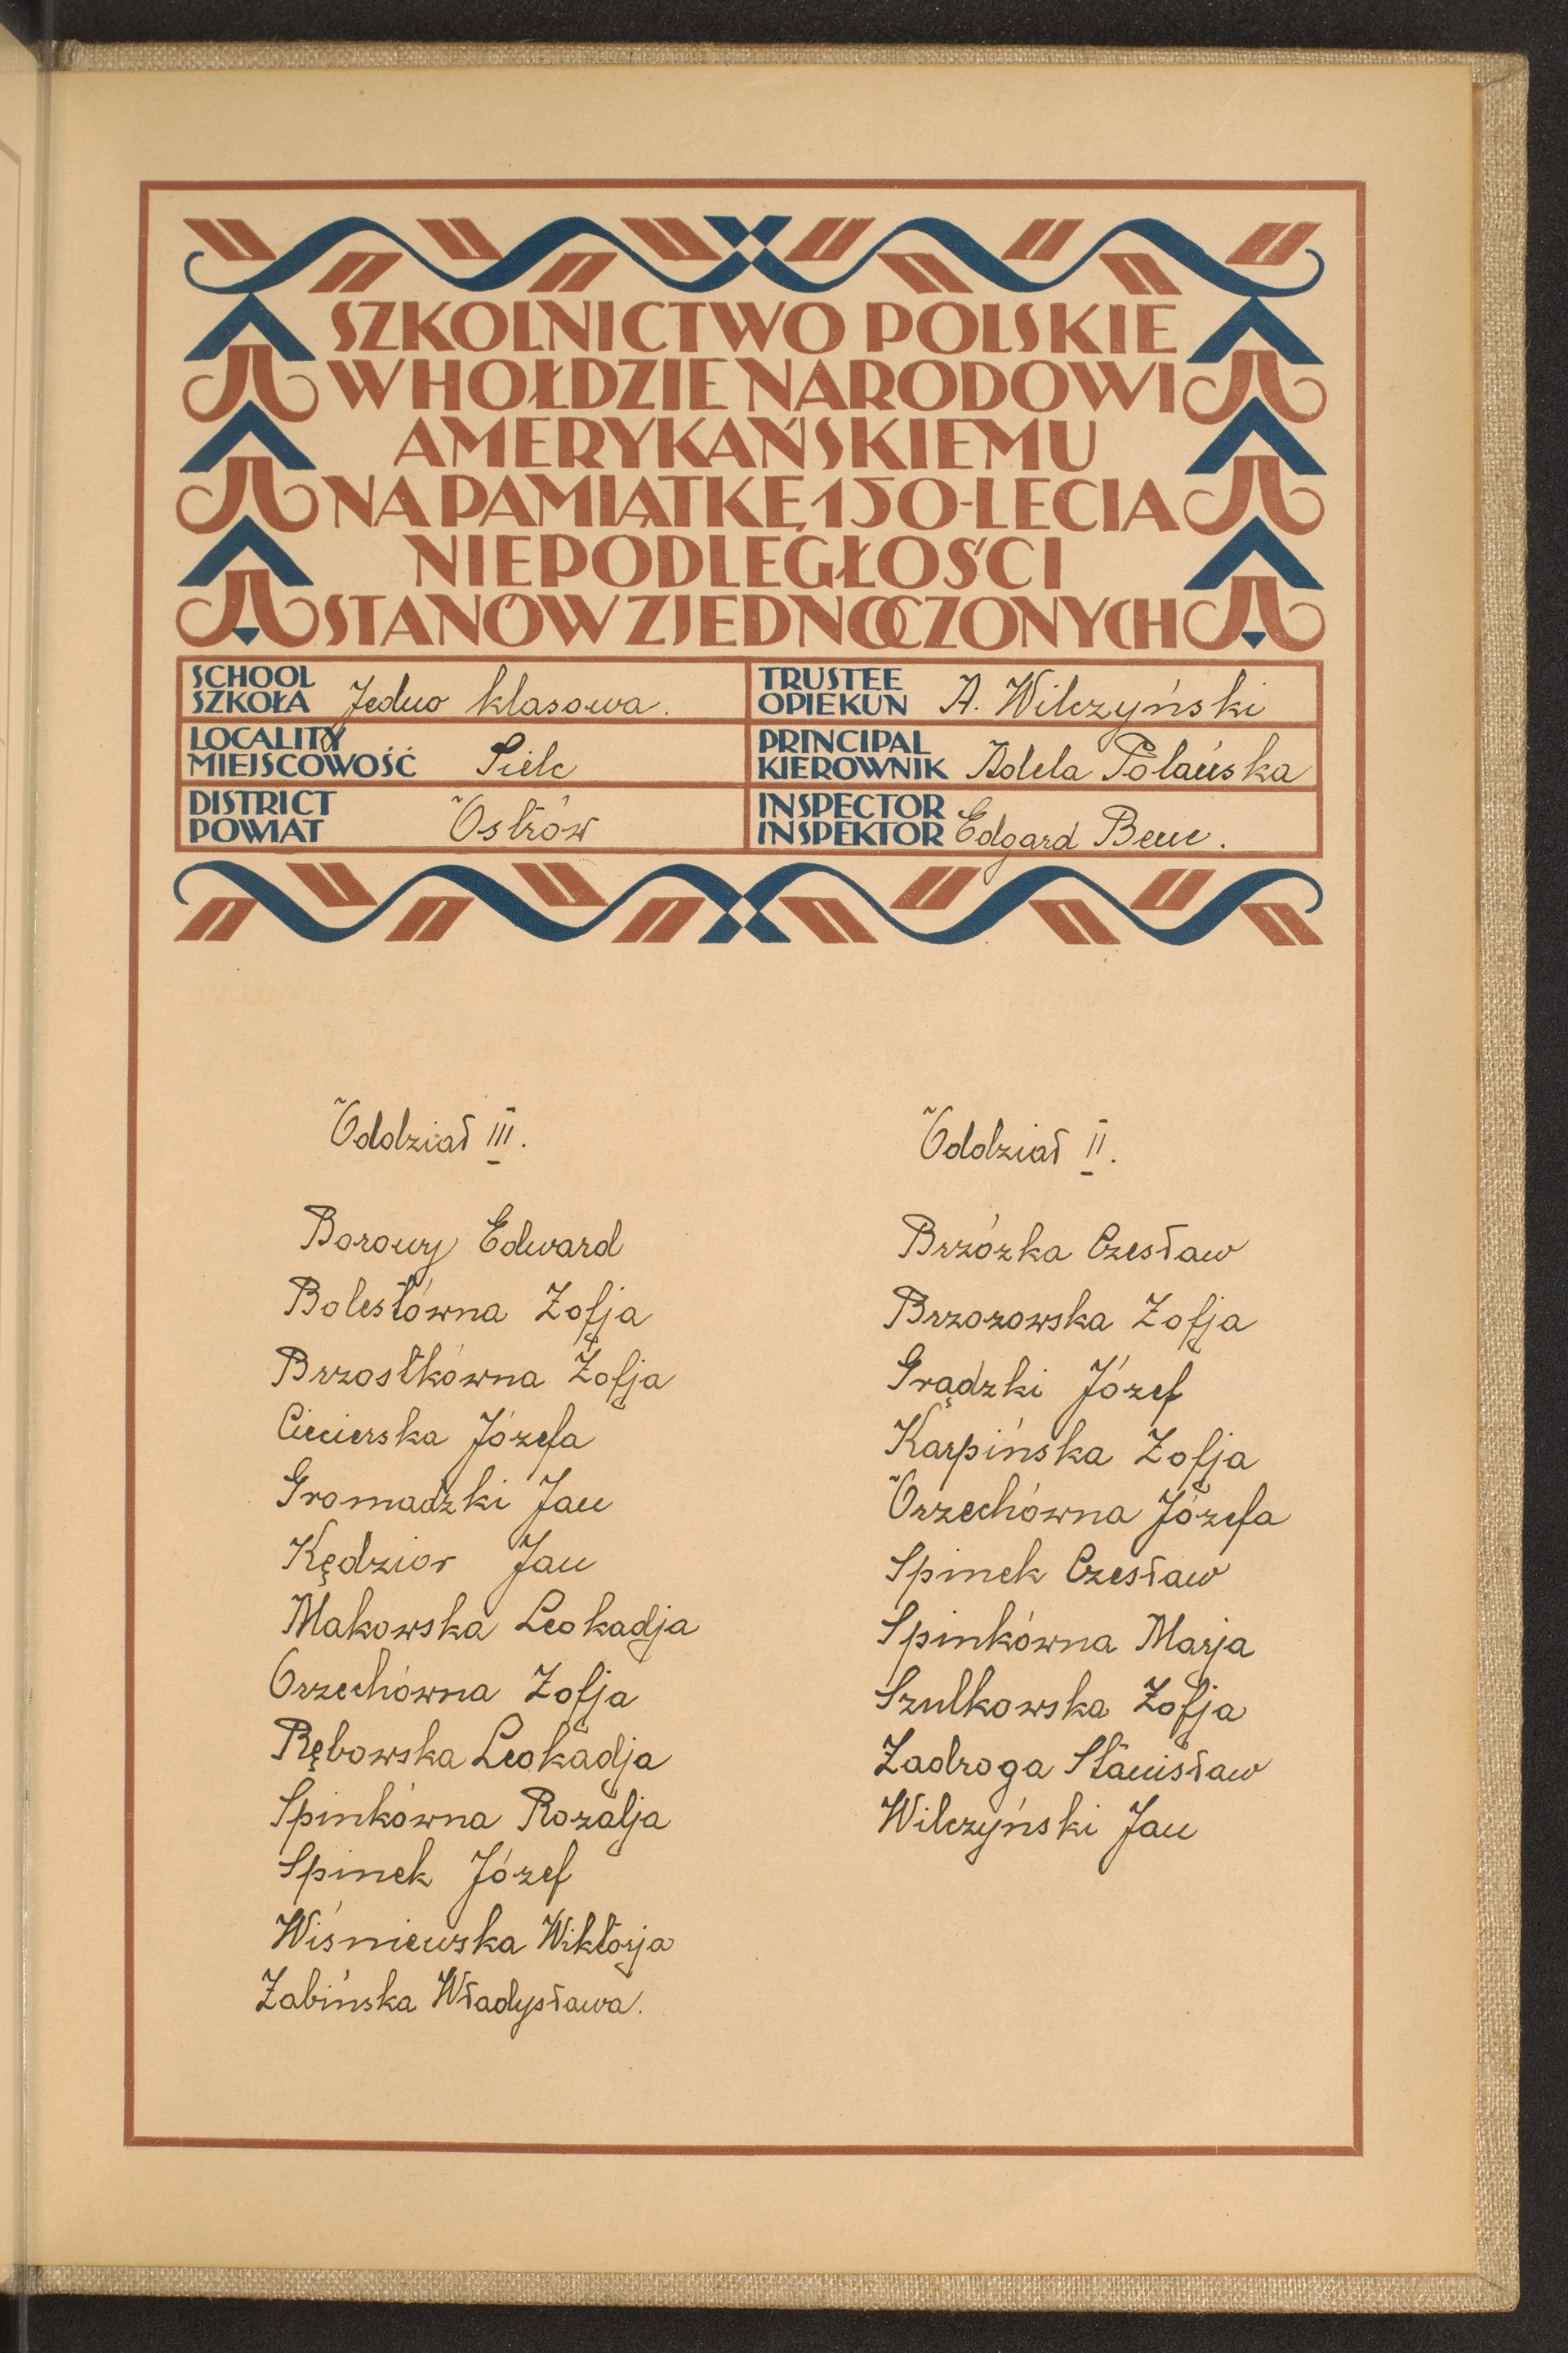 SZKOLNICTWO POLSKIE
W HOŁDZIE NARODOWI
AMERYKAŃSKIEMU
NA PAMIĄTKĘ 150-LECIA
NIEPODLEGŁOŚCI
STANÓW ZJEDNOCZONYCH
SCHOOL
SZKOŁA Jedno klasowa.
TRUSTEE
OPIEKUN A. Wilczyński
LOCALITY
MIEJSCOWOŚĆ Sielc
PRINCIPAL
KIEROWNIK Adela Polańska
DISTRICT
POWIAT Ostrów
INSPECTOR
INSPEKTOR Edgard Bem.
Oddział III.
Borowy Edward
Bolestówna Zofja
Brzostkówna Zofja
Ciecierska Józefa
Gromadzki Jan
Kędzior Jan
Makowska Leokadja
Orzechówna Zofja
Rębowska Leokadja
Spinkówna Rozalja
Spinek Józef
Wiśniewska Wiktorja
Zabińska Władysława.
Oddział II.
Brzózka Czesław
Brzozowska Zofja
Grądzki Józef
Karpińska Zofja
Orzechówna Józefa
Spinek Czesław
Spinkówna Marja
Szulkowska Zofja
Zadroga Stanisław
Wilczyński Jan